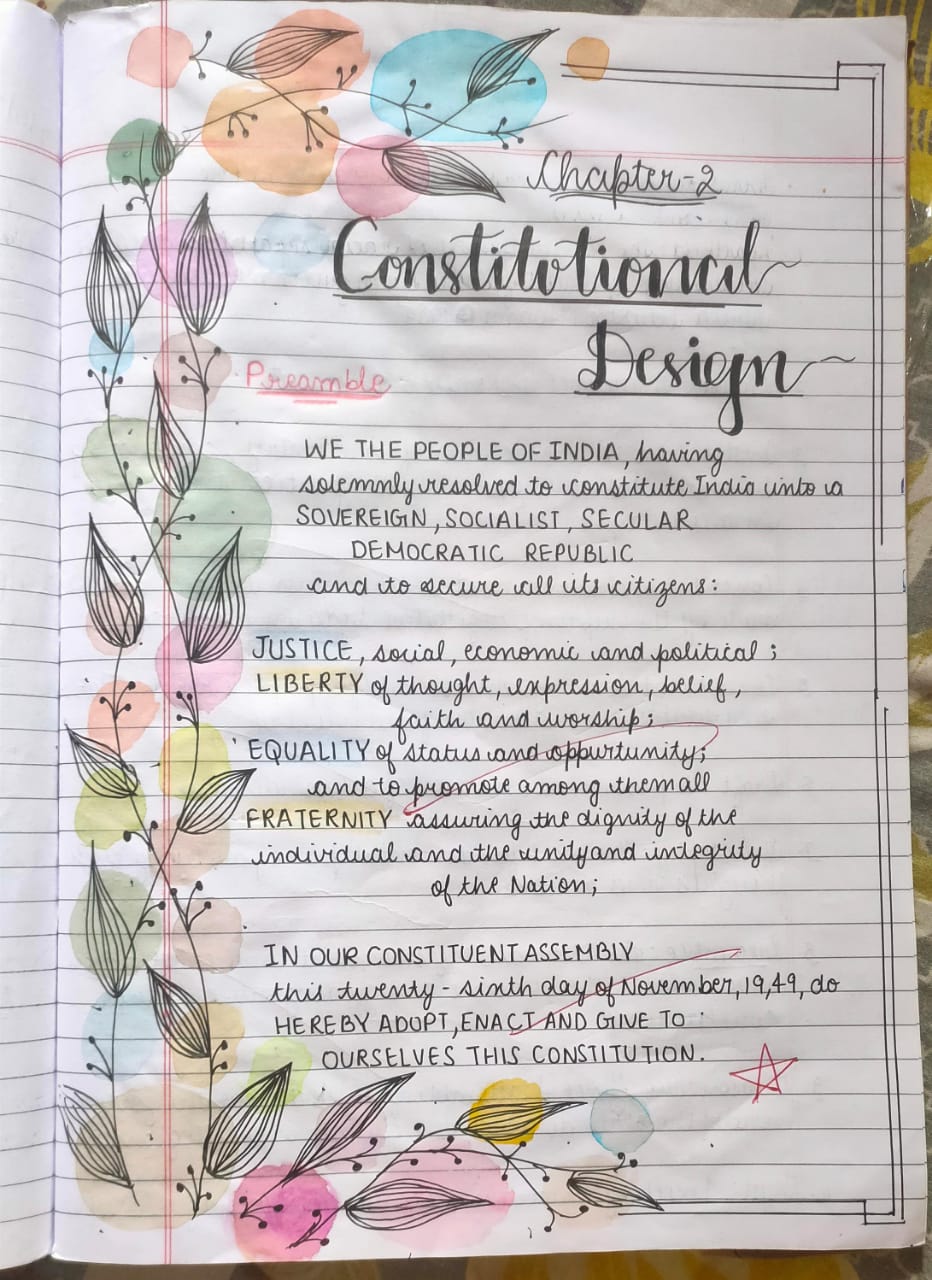 Chapter-2
Constitutional
Design
Preamble
WE THE PEOPLE OF INDIA, having
solemnly resolved to constitute India into a
SOVEREIGN, SOCIALIST, SECULAR
DEMOCRATIC REPUBLIC
and to secure all its citizens:
JUSTICE, social, economic and political;
LIBERTY of thought, expression, belief,
faith and worship;
EQUALITY of status and oppurtunity;
and to promote among them all
FRATERNITY assuring the dignity of the
individual and the unity and integrity
of the Nation;
IN OUR CONSTITUENT ASSEMBLY
this twenty-sixth day of November, 19,49, do
HEREBY ADOPT, ENACT AND GIVE TO
OURSELVES THIS CONSTITUTION.